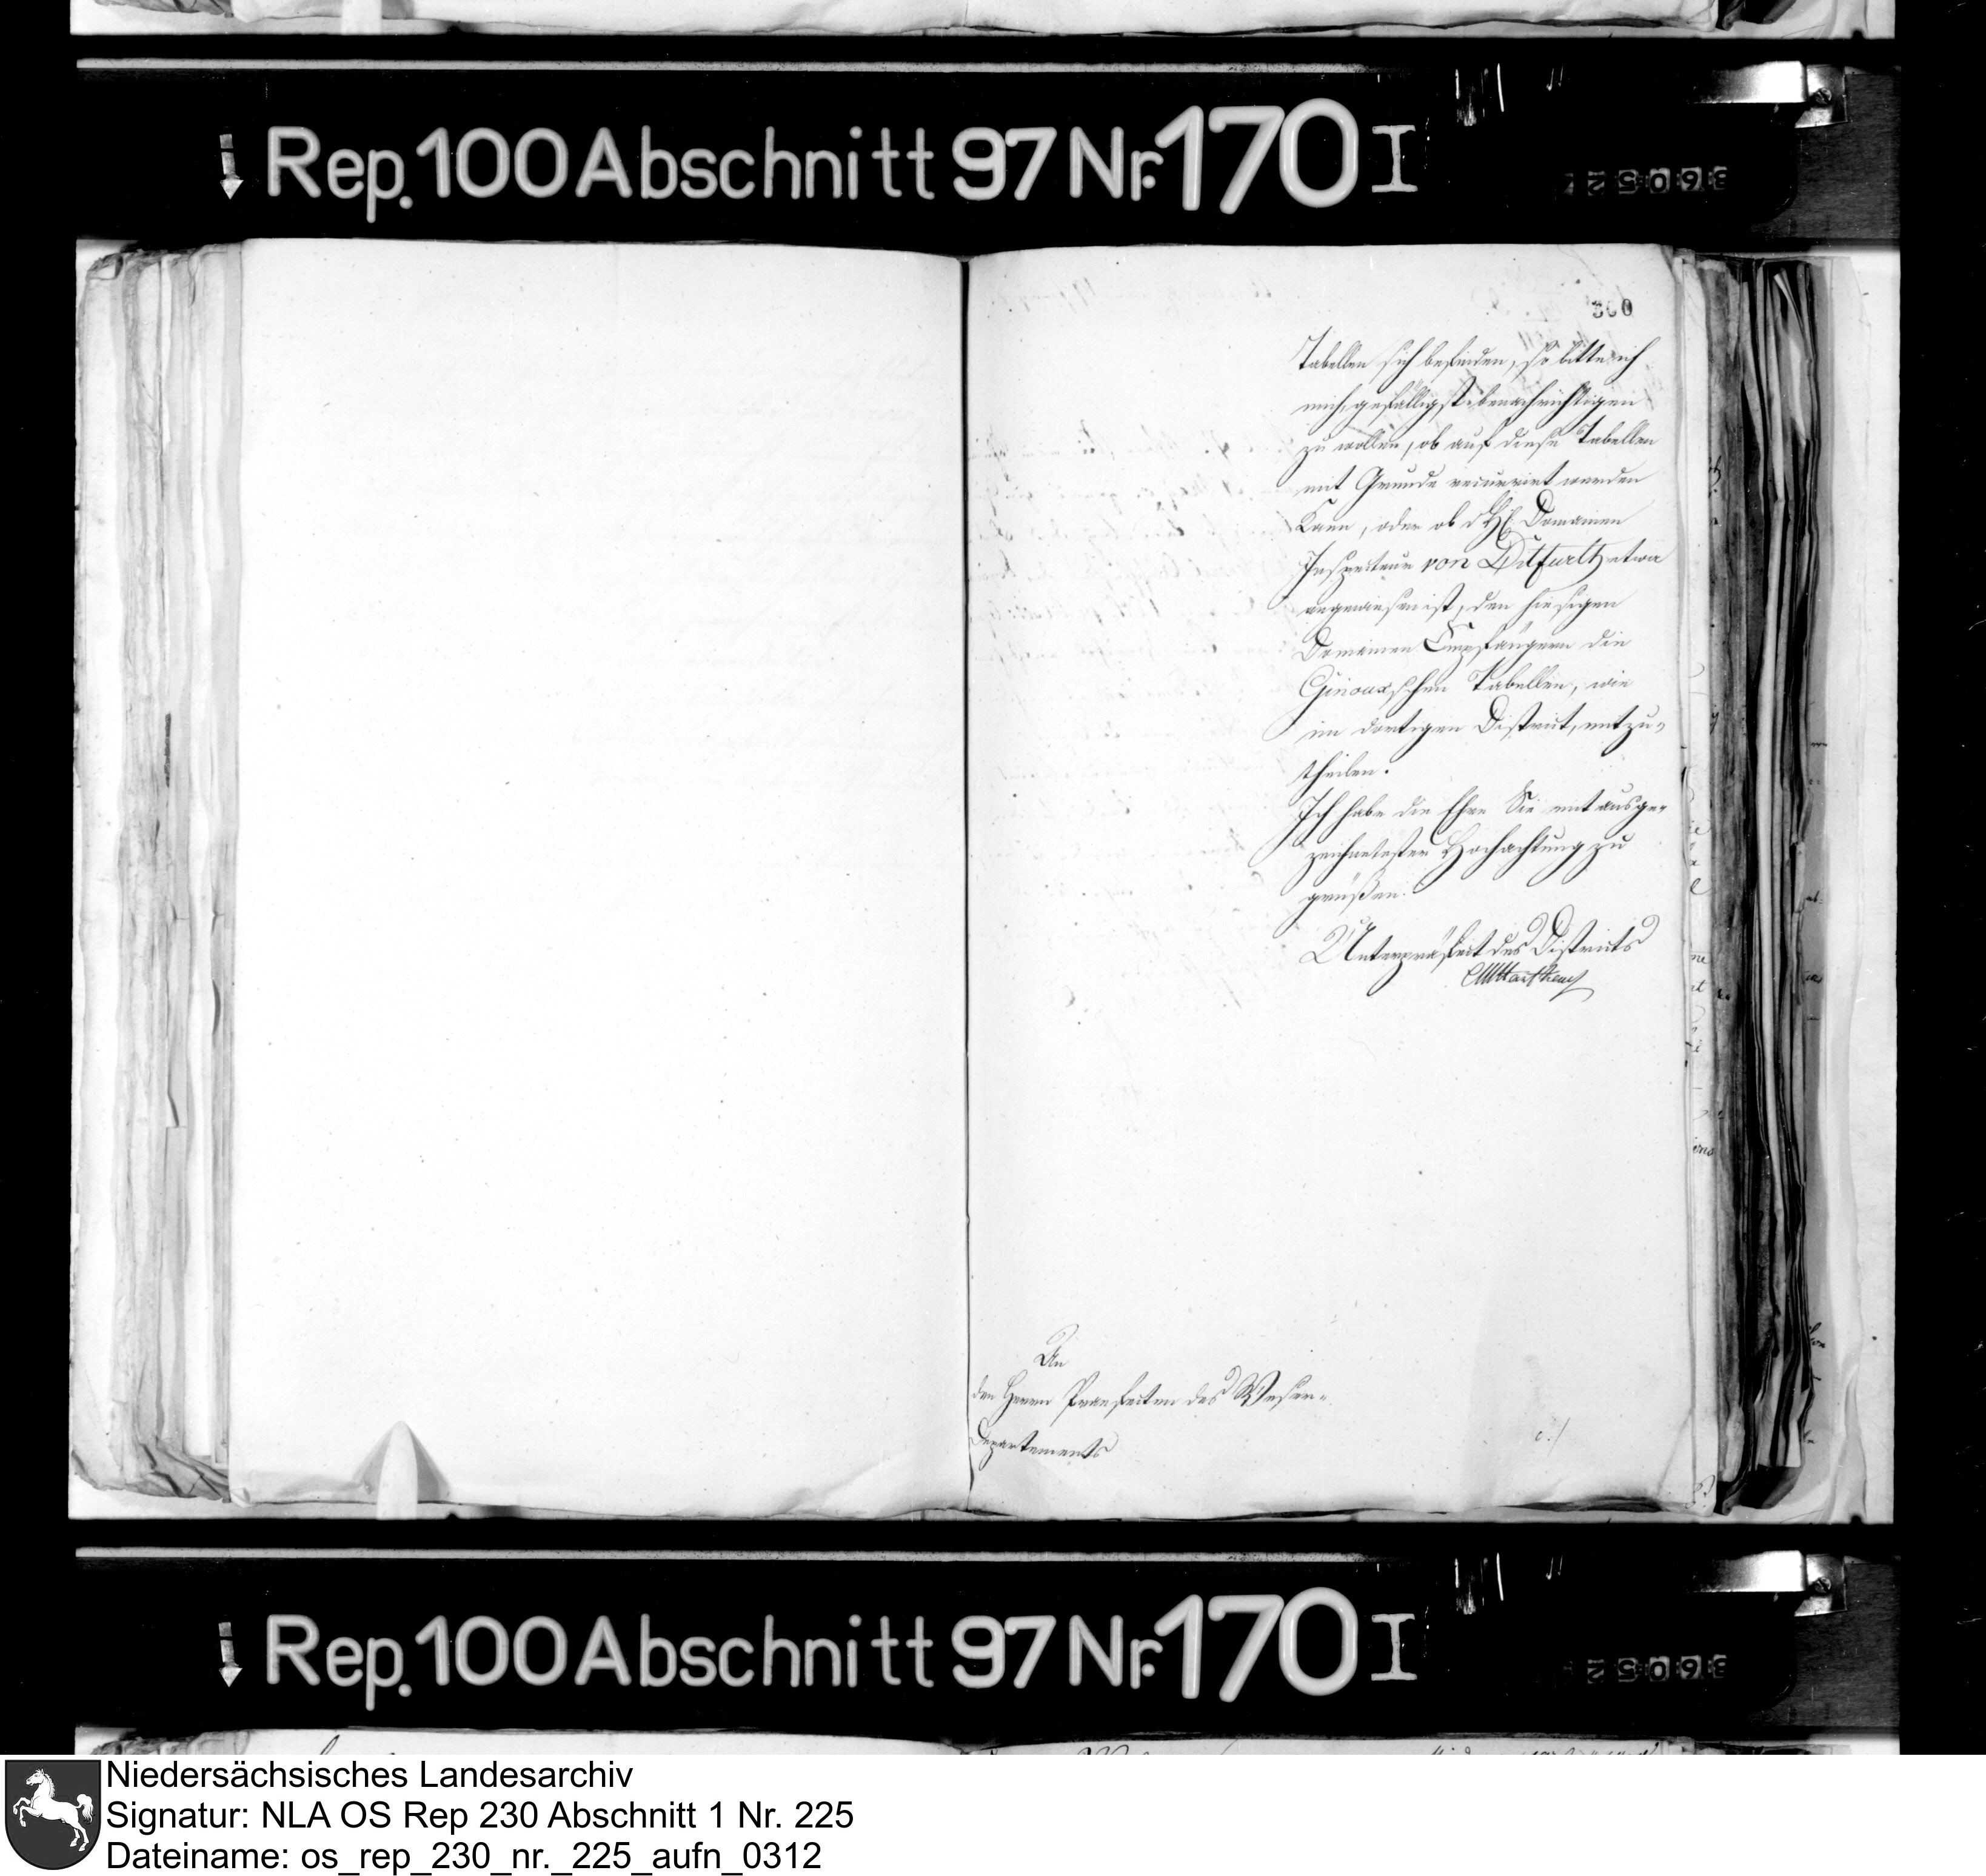 Rep. 100 Abschnitt 97 Nr. 170 I
36052
300
Tabellen sich befinden, so bitte ich
mich gefälligst benachrichtigen
zu wollen, ob auf diese Tabellen
mit Grunde recurrirt werden
kann, oder ob d H. Domainen
Inspecteur von Ditfurth etwa
angewiesen ist, den hiesigen
Domainen Empfängern die
Ginouxschen Tabellen, wie
im dortigen District, mitzu-
theilen.
Ich habe die Ehre Sie mit ausge-
zeichnetester Hochachtung zu
grüßen.
Unterpräfect des Districts
An
den Herrn Praefecten des Weser-
Departements
Rep. 100 Abschnitt 97 Nr. 170 I
36052
Niedersächsisches Landesarchiv
Signatur: NLA OS Rep 230 Abschnitt 1 Nr. 225
Dateiname: os_rep_230_nr._225_aufn_0312